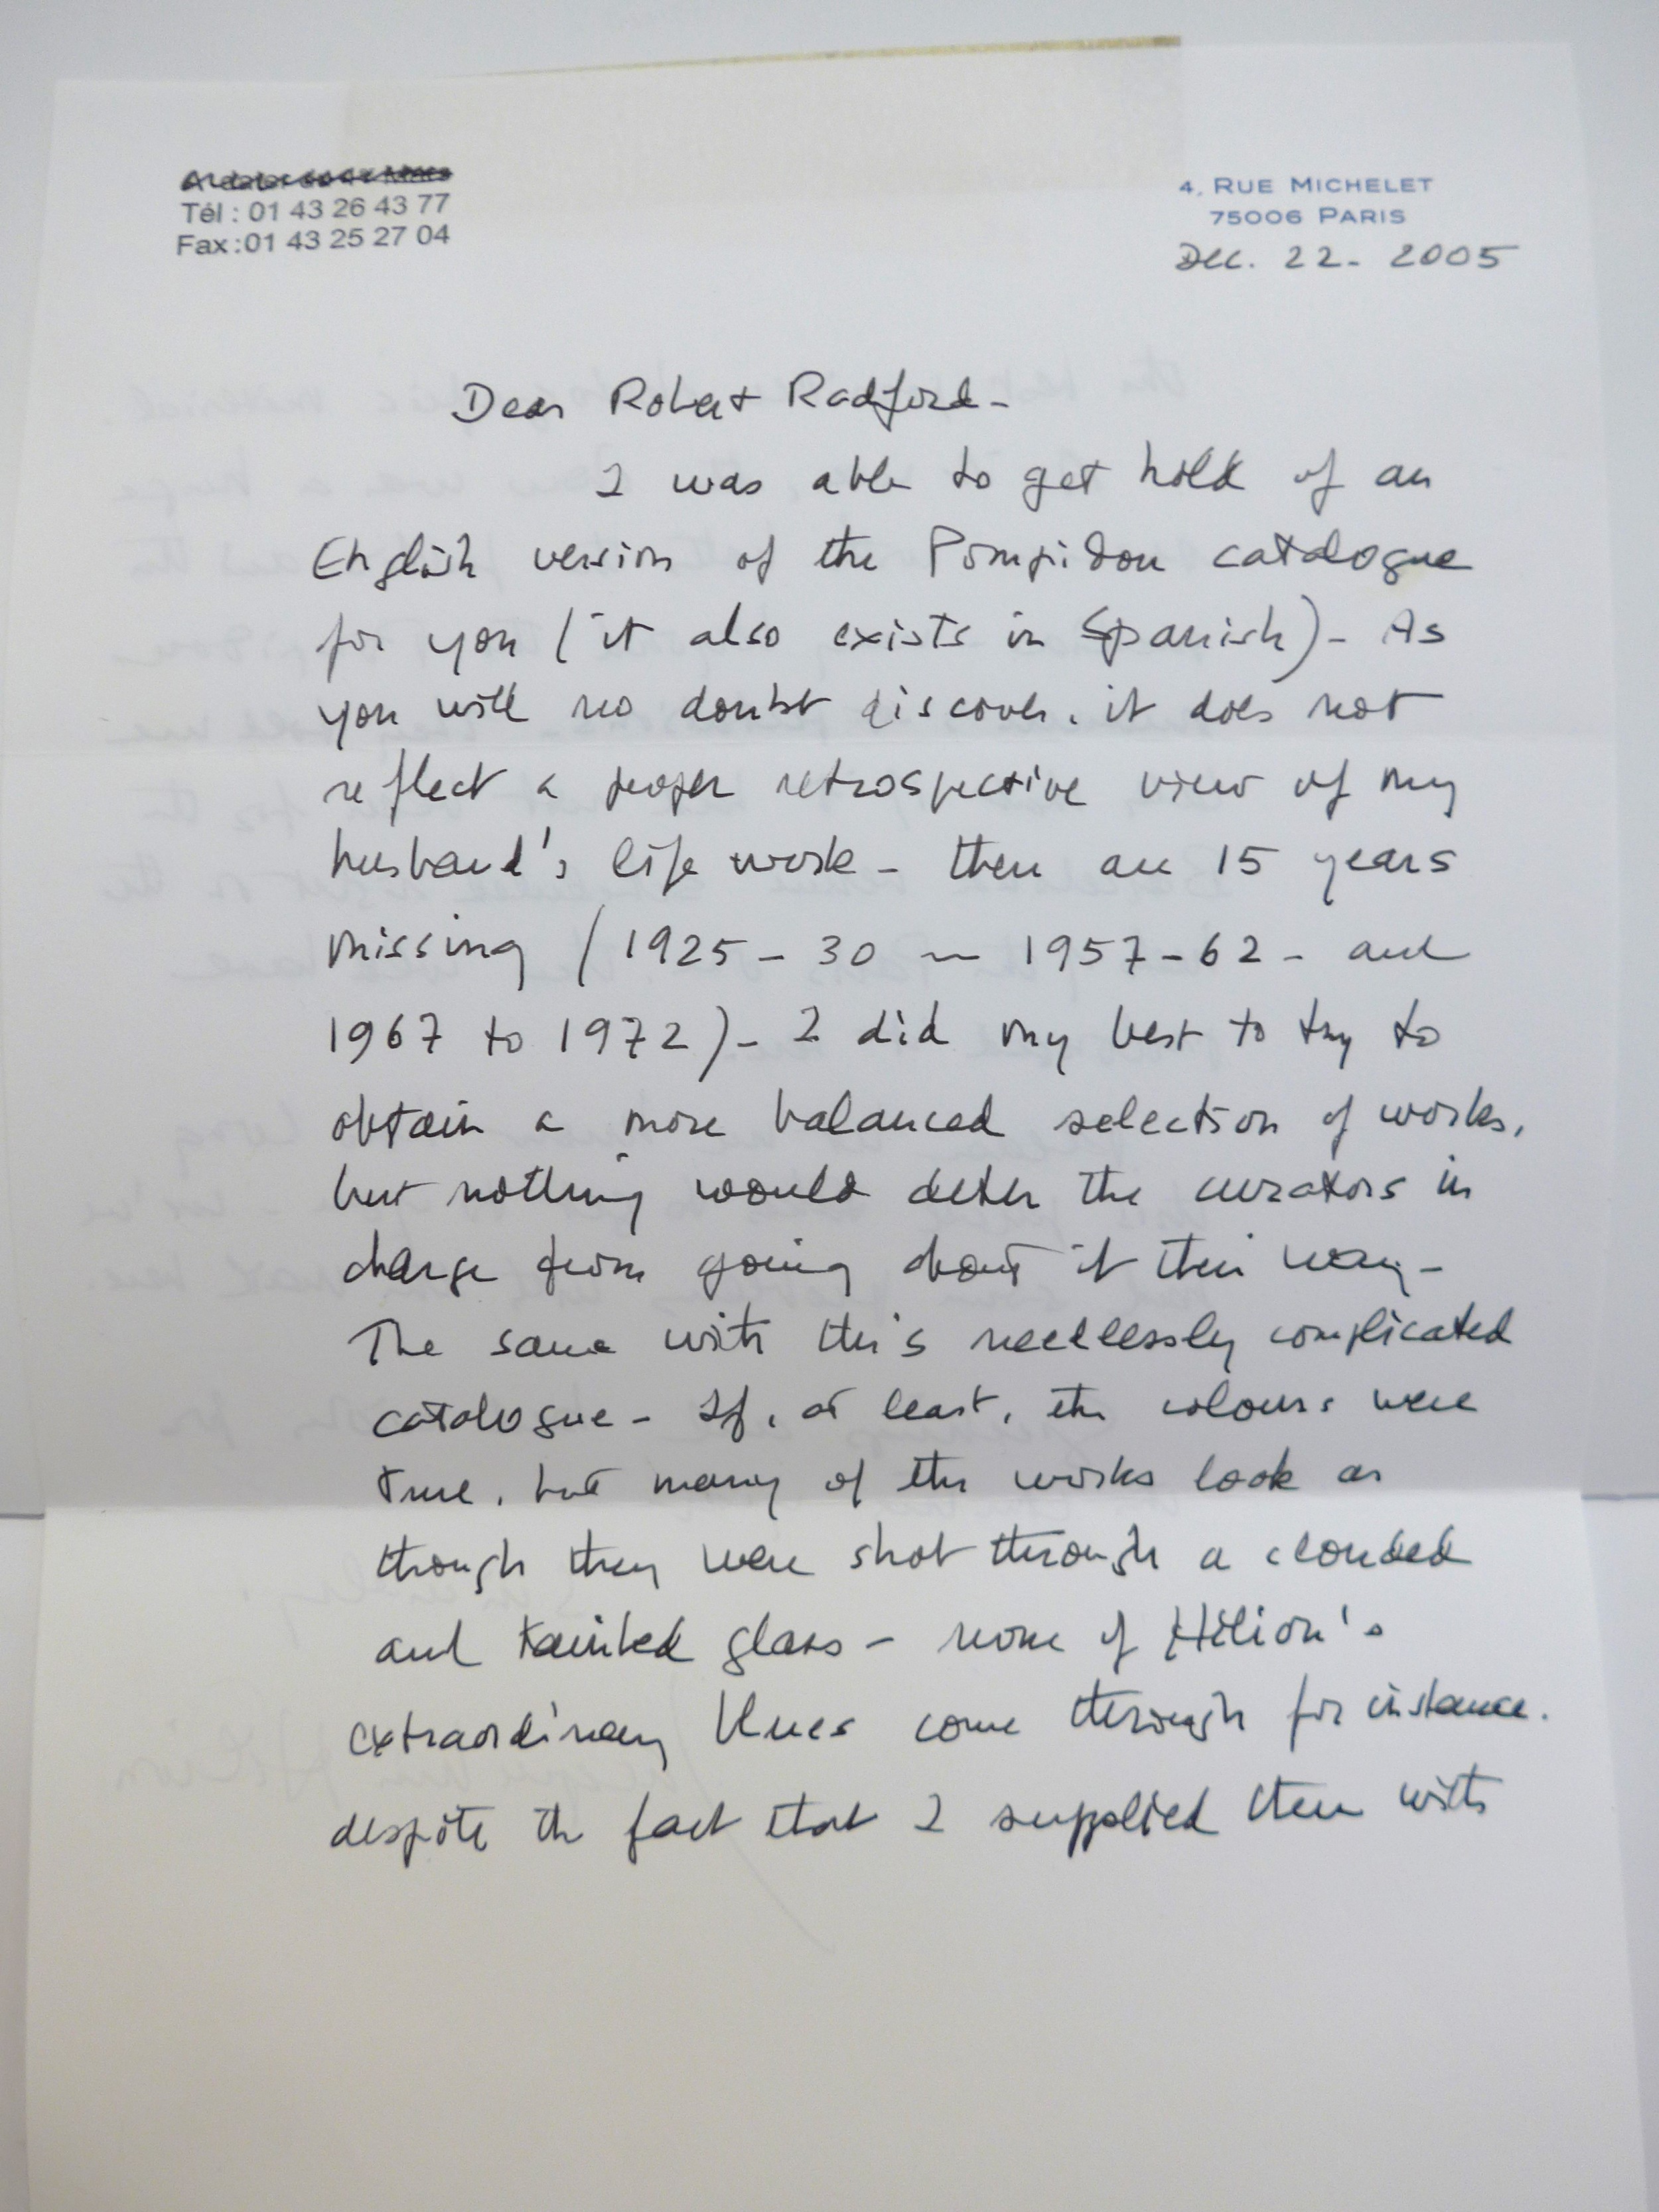 Tél : 01 43 26 43 77
Fax :01 43 25 27 04
4, RUE MICHELET
75006 PARIS
Dec. 22 - 2005
Dear Robert Radford -
I was able to get hold of an
English version of the Pompidou catalogue
for you ( it also exists in Spanish) - As
you will no doubt discover, it does not
reflect a proper retrospective view of my
husband's life work - there are 15 years
missing ( 1925 - 30 — 1957 - 62 - and
1967 to 1972 ) - I did my best to try to
obtain a more balanced selection of works,
but nothing would deter the curators in
charge from going about it their way -
The same with this needlessly complicated
catalogue - If, at least, the colours were
true, but many of the works look as
though they were shot through a clouded
and tainted glass - none of Hélion's
extraordinary blues come through for instance.
despite the fact that I supplied them with